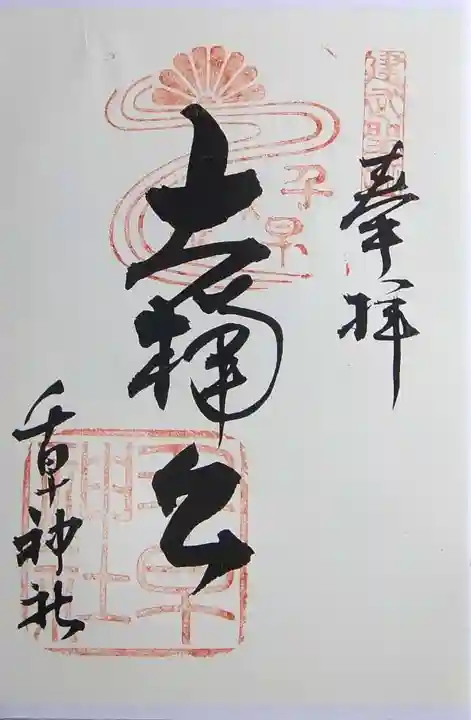 建武聖
奉拝
千早
大楠公
千早神社
千早
神社